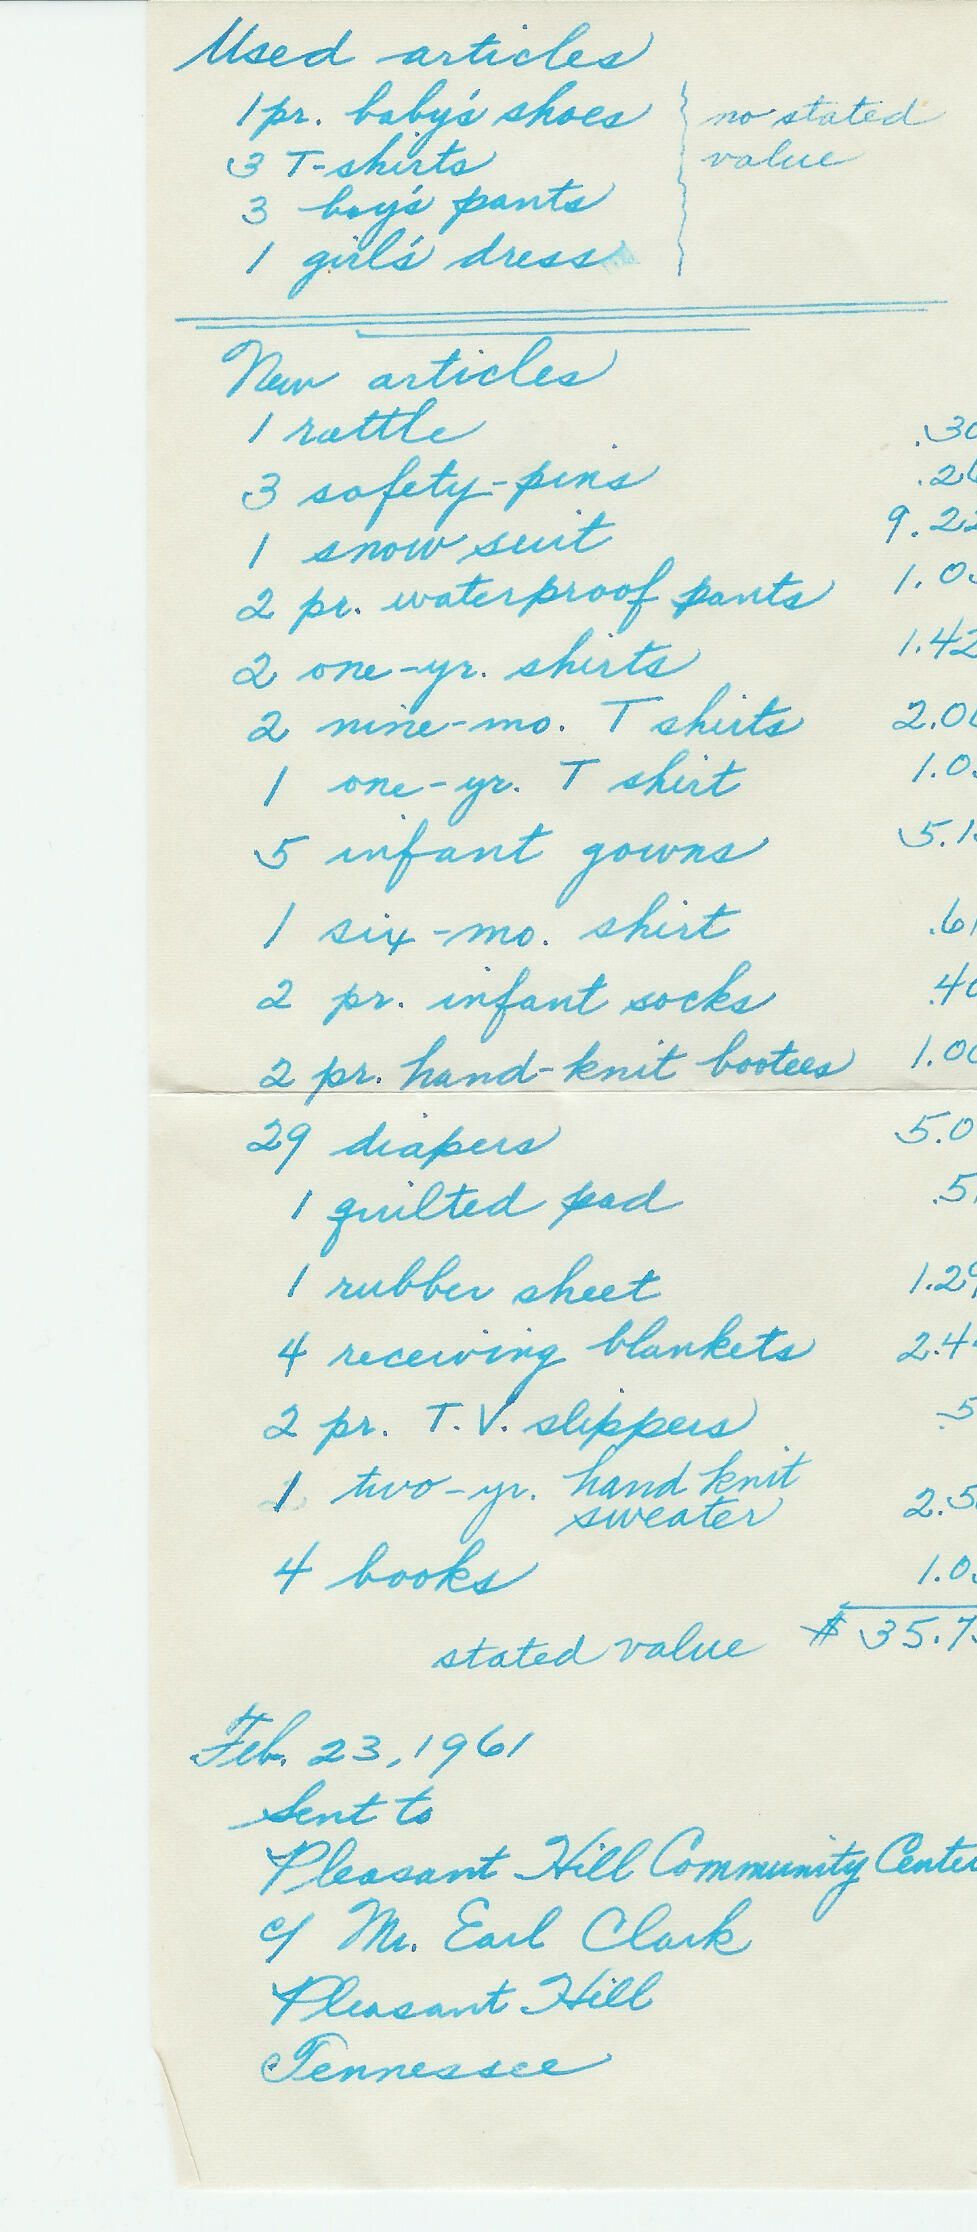 Used articles
1 pr. baby's shoes
3 T-shirts
3 boy's pants
1 girl's dress
no stated
value
New articles
1 rattle .30
3 safety-pins .2
1 snow suit 9.22
2 pr. waterproof pants 1.0
2 one-yr. shirts 1.42
2 nine-mo. T shirts 2.0
1 one-yr. T shirt 1.0
5 infant gowns 5.1
1 six-mo. shirt .61
2 pr. infant socks .40
2 pr. hand-knit bootees 1.00
29 diapers 5.0
1 quilted pad .5
1 rubber sheet 1.29
4 receiving blankets 2.4
2 pr. T.V. slippers .5
1 two-yr. hand knit
sweater 2.5
4 books 1.0
stated value $ 35.7
Feb. 23, 1961
Sent to
Pleasant Hill Community Center
c/ Mr. Earl Clark
Pleasant Hill
Tennessee